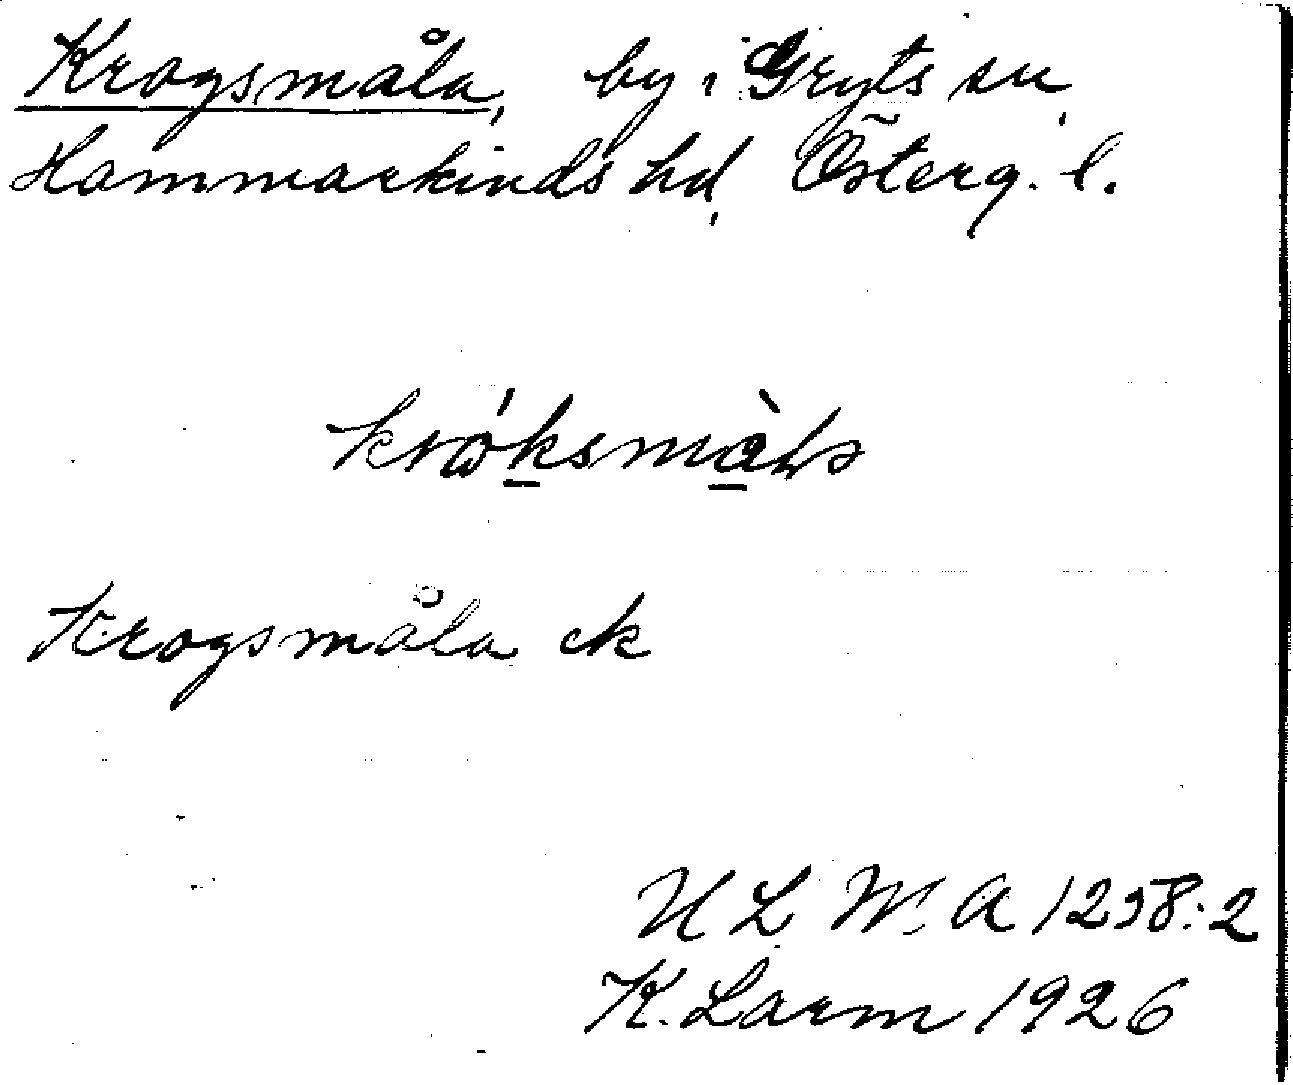 Krogsmåla, by i Gryts sn,
Hammarkinds hd, Österg. l.
Krogsmåla ek
U L M A 1258:2
K. Larm 1926